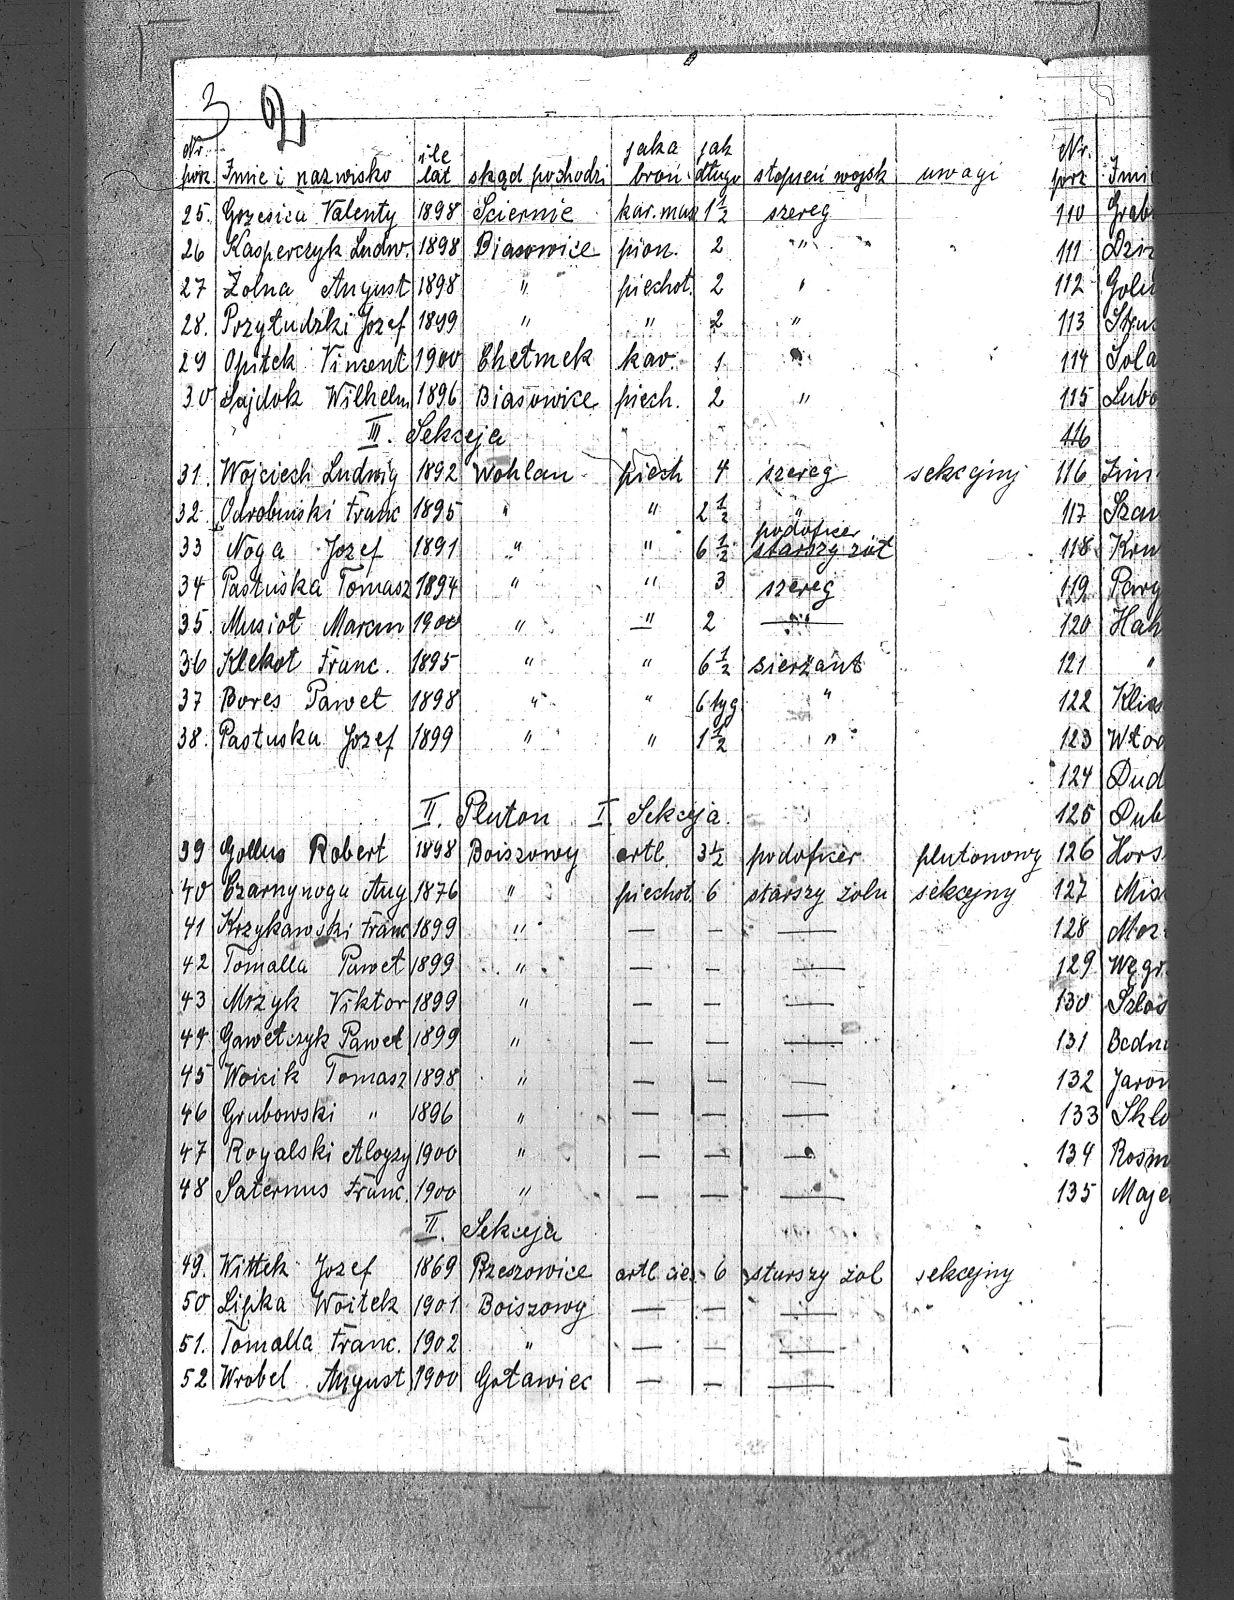 3 2
Nr. porz. Imię i nazwisko ile lat skąd pochodzi jaka broń jak długo stopień wojsk uwagi
25. Grzesica Valenty 1898 Sciernie kar. masz 1 1/2 szereg
26 Kasperczyk Ludw. 1898 Biasowice pion. 2 "
27 Żolna August 1898 " piechot. 2 "
28. Przytudzki Jozef 1899 " " 2 "
29 Opitek Vinzent 1900 Chełmek kav. 1 "
30 Sajdok Wilhelm 1896 Biasowice piech. 2 "
III. Sekceja
31. Wojciech Ludwig 1892 Wohlan piech 4 szereg sekcyjny
32. Odrobinski Franc 1895 " " 2 1/2 "
33 Noga Jozef 1891 " " 6 1/2 podoficer starszy żoł
34 Pastuska Tomasz 1894 " " 3 szereg
35. Musioł Marcin 1900 " " 2 "
36 Klekot Franc. 1895 " " 6 1/2 sierżant
37 Bores Paweł 1898 " " 6 tyg "
38. Pastuska Jozef 1899 " " 1 1/2 "
II. Pluton I Sekcyja.
39 Gollus Robert 1898 Boiszowy artl. 3 1/2 podoficer plutonowy
40 Czarnynoga Aug 1876 " piechot. 6 starszy żoln sekcyjny
41 Krzykawski Franc 1899 " — — —
42 Tomalla Paweł 1899 " — — —
43 Mrzyk Viktor 1899 " — — —
44 Gawełczyk Paweł 1899 " — — —
45 Woicik Tomasz 1898 " — — —
46 Grubowski " 1896 " — — —
47 Rogalski Aloyzy 1900 " — — —
48 Saternus Franc. 1900 " — — —
II. Sekceja
49. Wittek Jozef 1869 Brzeszowice artl. cięż. 6 starszy żoł sekcyjny
50 Lipka Woitek 1901 Boiszowy — — —
51. Tomalla Franc. 1902 " — — —
52 Wrobel August 1900 Gotawiec — — —
Nr. porz Imię
110 Grab
111 Dziz
112
113
114 Sola
115 Lubo
116
116
117
118
119
120
121 "
122
123 Włod
124 Dud
125 Dub
126 Hors
127 Mis
128
129 Węgr
130
131 Bedn
132 Jaron
133 Sklo
134 Rosm
135 Maje